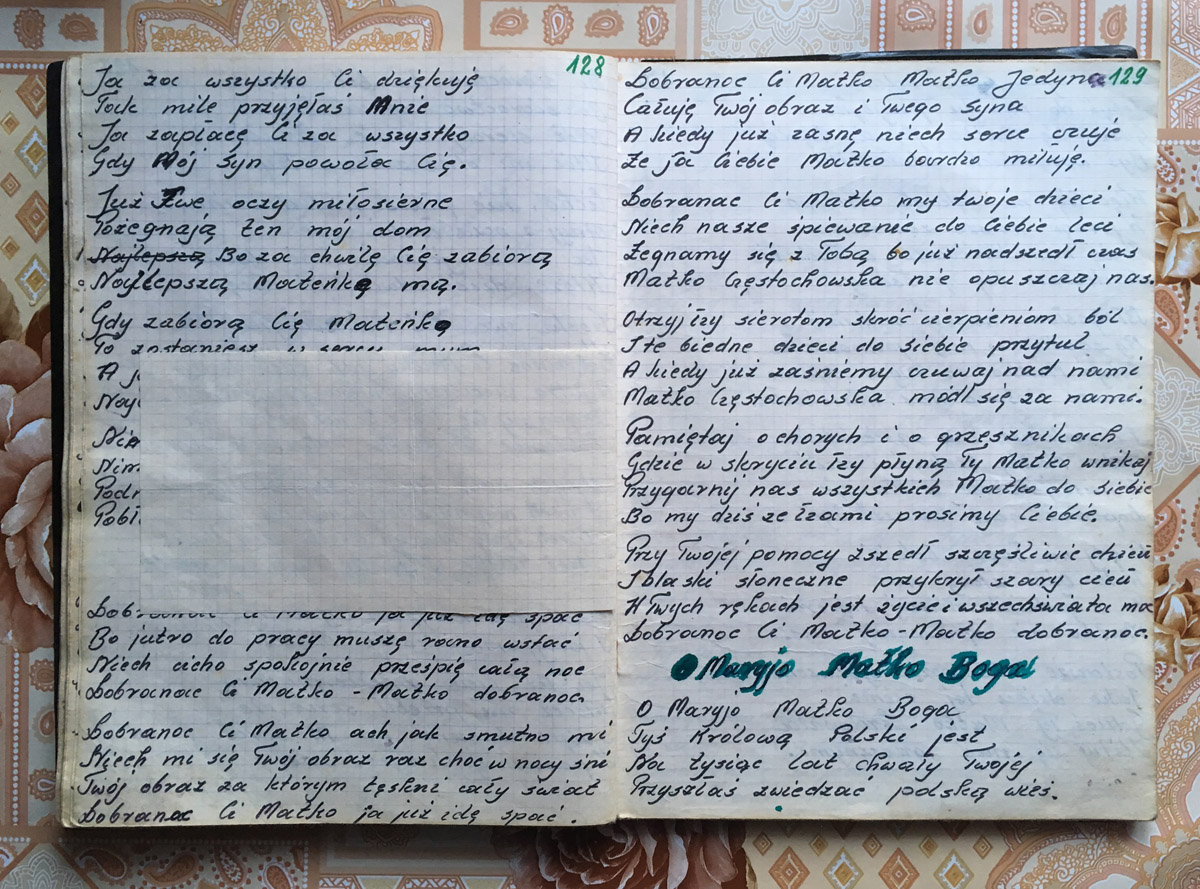 128
Ja za wszystko Ci dziękuję
Tak mile przyjęłaś Mnie
Ja zapłacę Ci za wszystko
Gdy Mój Syn powoła Cię.
Już Twe oczy miłosierne
Pożegnają ten mój dom
Najlepszą Bo za chwilę Cię zabiorą
Najlepszą Mateńkę mą.
Gdy zabiorą Cię Mateńkę
To zostaniesz w sercu mym
A
Bo jutro do pracy muszę rano wstać
Niech cicho spokojnie prześpię całą noc
Dobranoc Ci Matko - Matko dobranoc
Dobranoc Ci Matko ach jak smutno mi
Niech mi się Twój obraz raz choć w nocy śni
Twój obraz za którym tęskni cały świat
Dobranoc Ci Matko ja już idę spać.
129
Dobranoc Ci Matko Matko Jedyna
Całuję Twój obraz i Twego Syna
A kiedy już zasnę niech serce czuje
Że ja Ciebie Matko bardzo miłuję.
Dobranoc Ci Matko my twoje dzieci
Niech nasze śpiewanie do Ciebie leci
Żegnamy się z Tobą bo już nadszedł czas
Matko Częstochowska nie opuszczaj nas.
Otrzyj łzy sierotom skróć cierpieniom ból
I te biedne dzieci do siebie przytul
A kiedy już zaśniemy czuwaj nad nami
Matko Częstochowska módl się za nami.
Pamiętaj o chorych i o grzesznikach
Gdzie w skryciu łzy płyną Ty Matko wnikaj
Przygarnij nas wszystkich Matko do siebie
Bo my dziś ze łzami prosimy Ciebie.
Przy Twojej pomocy zszedł szczęśliwie dzień
I blaski słoneczne przykrył szary cień
W Twych rękach jest życie i wszechświata moc
Dobranoc Ci Matko - Matko dobranoc.
O Maryjo Matko Boga
O Maryjo Matko Boga
Tyś Królową Polski jest
Na tysiąc lat chwały Twojej
Przyszłaś zwiedzać polską wieś.